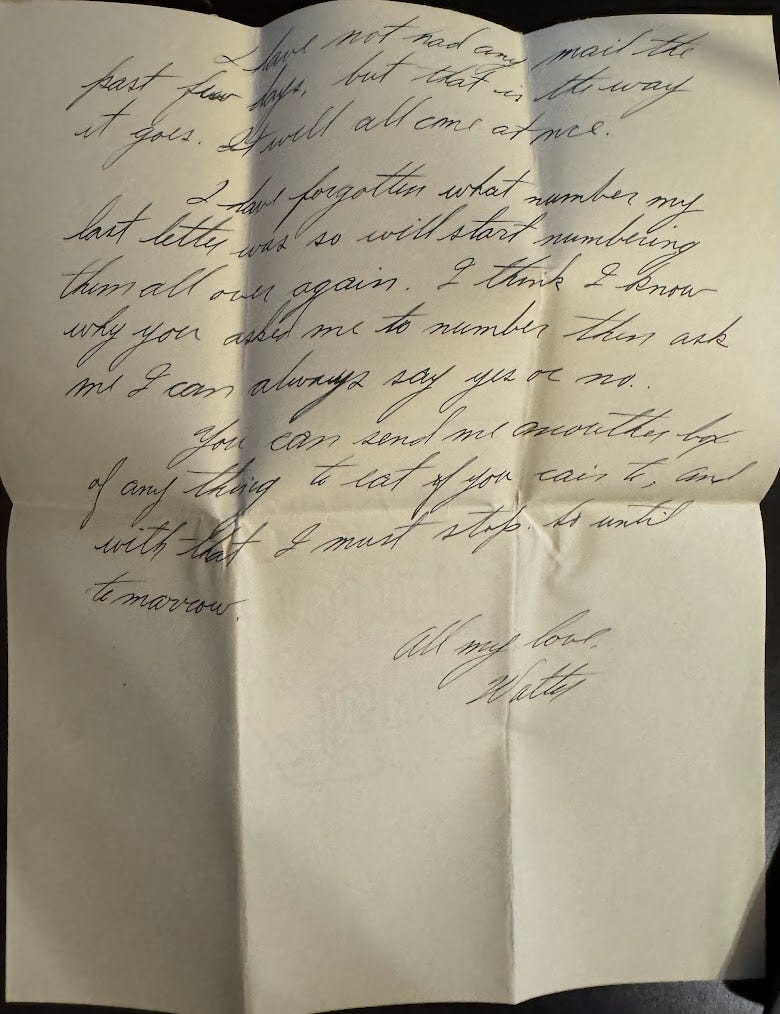 I have not had any mail the
past few days, but that is the way
it goes. It will all come at once.
I have forgotten what number my
last letter was so will start numbering
them all over again. I think I know
why you asked me to number then ask
me I can always say yes or no.
You can send me anouther box
of any thing to eat if you cair to, and
with that I must stop. So until
tomarrow.
All my love.
Walter